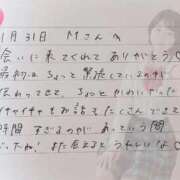 1月31日 Mさんへ
会いに来てくれてありがとう♡
最初はちょっと緊張しているのが
伝わってきて、ちょっとかわいかった
イチャイチャもお話もたくさんできて
時間すぎるのがあっという間
だったね! また会えるとうれしいな♡